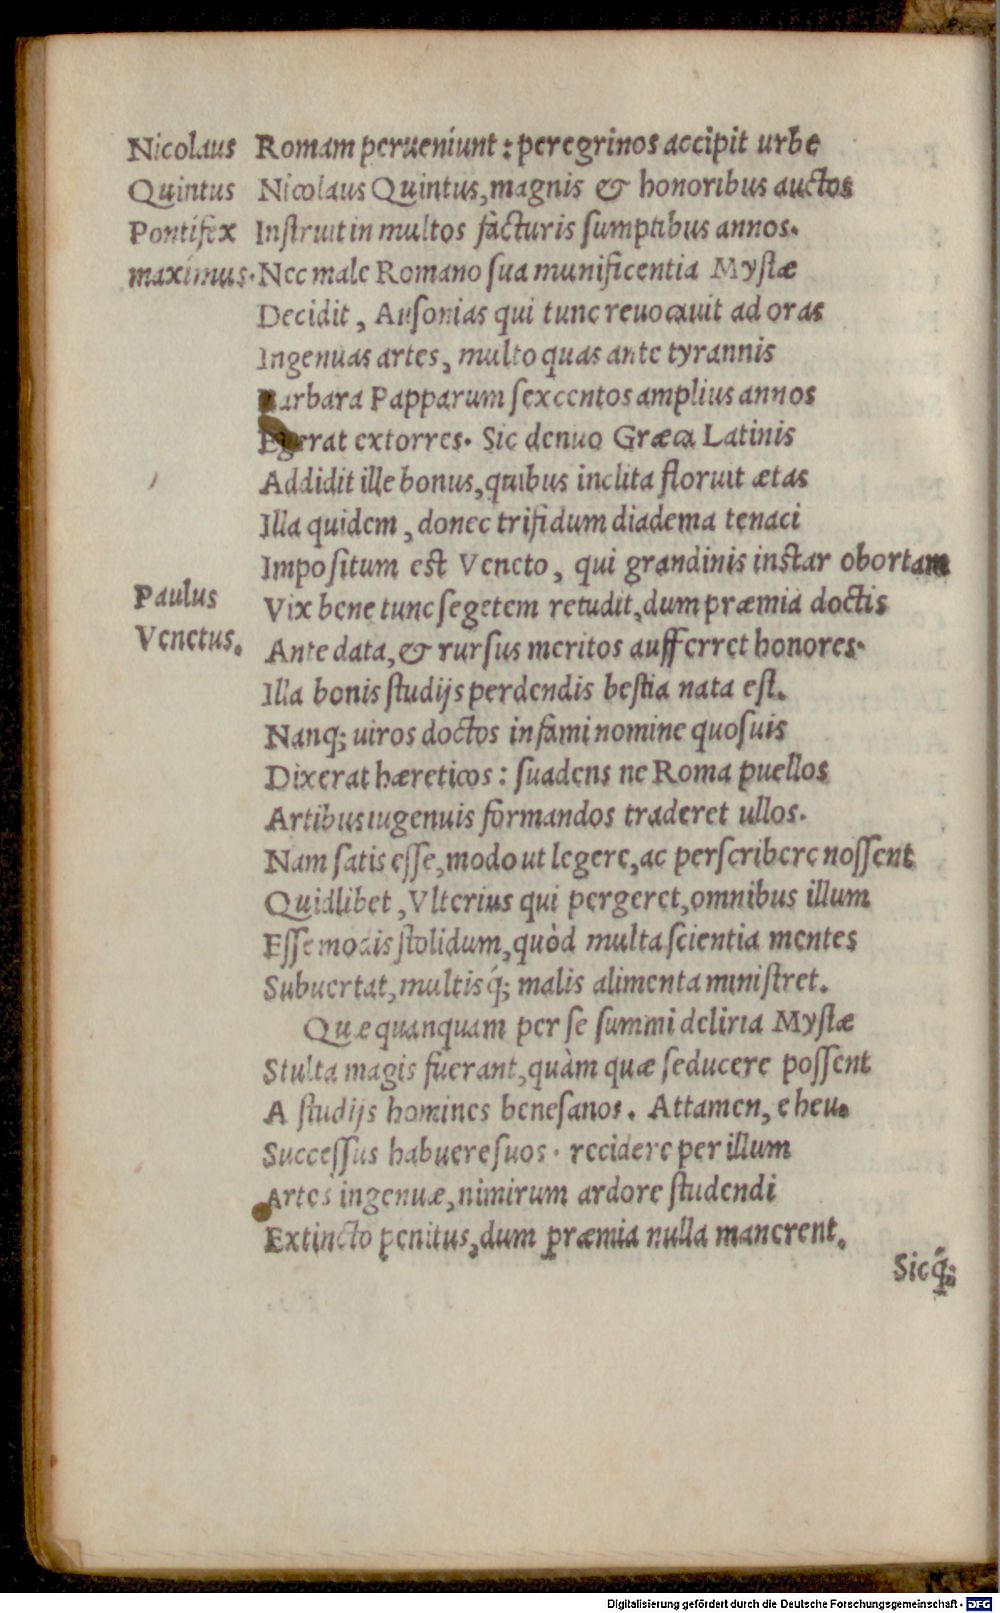 Nicolaus
Quintus
Pontifex
maximus.
Romam perueniunt: peregrinos accipit urbe
Nicolaus Quintus, magnis & honoribus auctos
Inſtruit in multos facturis ſumptibus annos.
Nec male Romano ſua munificentia Myſtæ
Decidit, Auſonias qui tunc reuocauit ad oras
Ingenuas artes, multo quas ante tyrannis
Barbara Papparum ſexcentos amplius annos
Egerat extorres. Sic denuo Græca Latinis
Addidit ille bonus, quibus inclita floruit ætas
Illa quidem, donec trifidum diadema tenaci
Impoſitum est Veneto, qui grandinis inſtar obortam
Paulus
Venetus.
Vix bene tunc ſegetem retudit, dum præmia doctis
Ante data, & rurſus meritos aufferret honores.
Illa bonis ſtudijs perdendis beſtia nata eſt.
Nanq; uiros doctos infami nomine quoſuis
Dixerat hæreticos: ſuadens ne Roma puellos
Artibus iugenuis formandos traderet ullos.
Nam ſatis eſſe, modo ut legere, ac perſcribere noſſent
Quidlibet, Vlterius qui pergeret, omnibus illum
Eſſe modis ſtolidum, quòd multa ſcientia mentes
Subuertat, multisq́; malis alimenta miniſtret.
Quæ quanquam per ſe ſummi deliria Myſtæ
Stulta magis fuerant, quàm quæ ſeducere poſſent
A ſtudijs homines beneſanos. Attamen, eheu.
Succeſſus habuere ſuos. recidere per illum
Artes ingenuæ, nimirum ardore ſtudendi
Extincto penitus, dum præmia nulla manerent.
Sicq́;
Digitalisierung gefördert durch die Deutsche Forschungsgemeinschaft - DFG